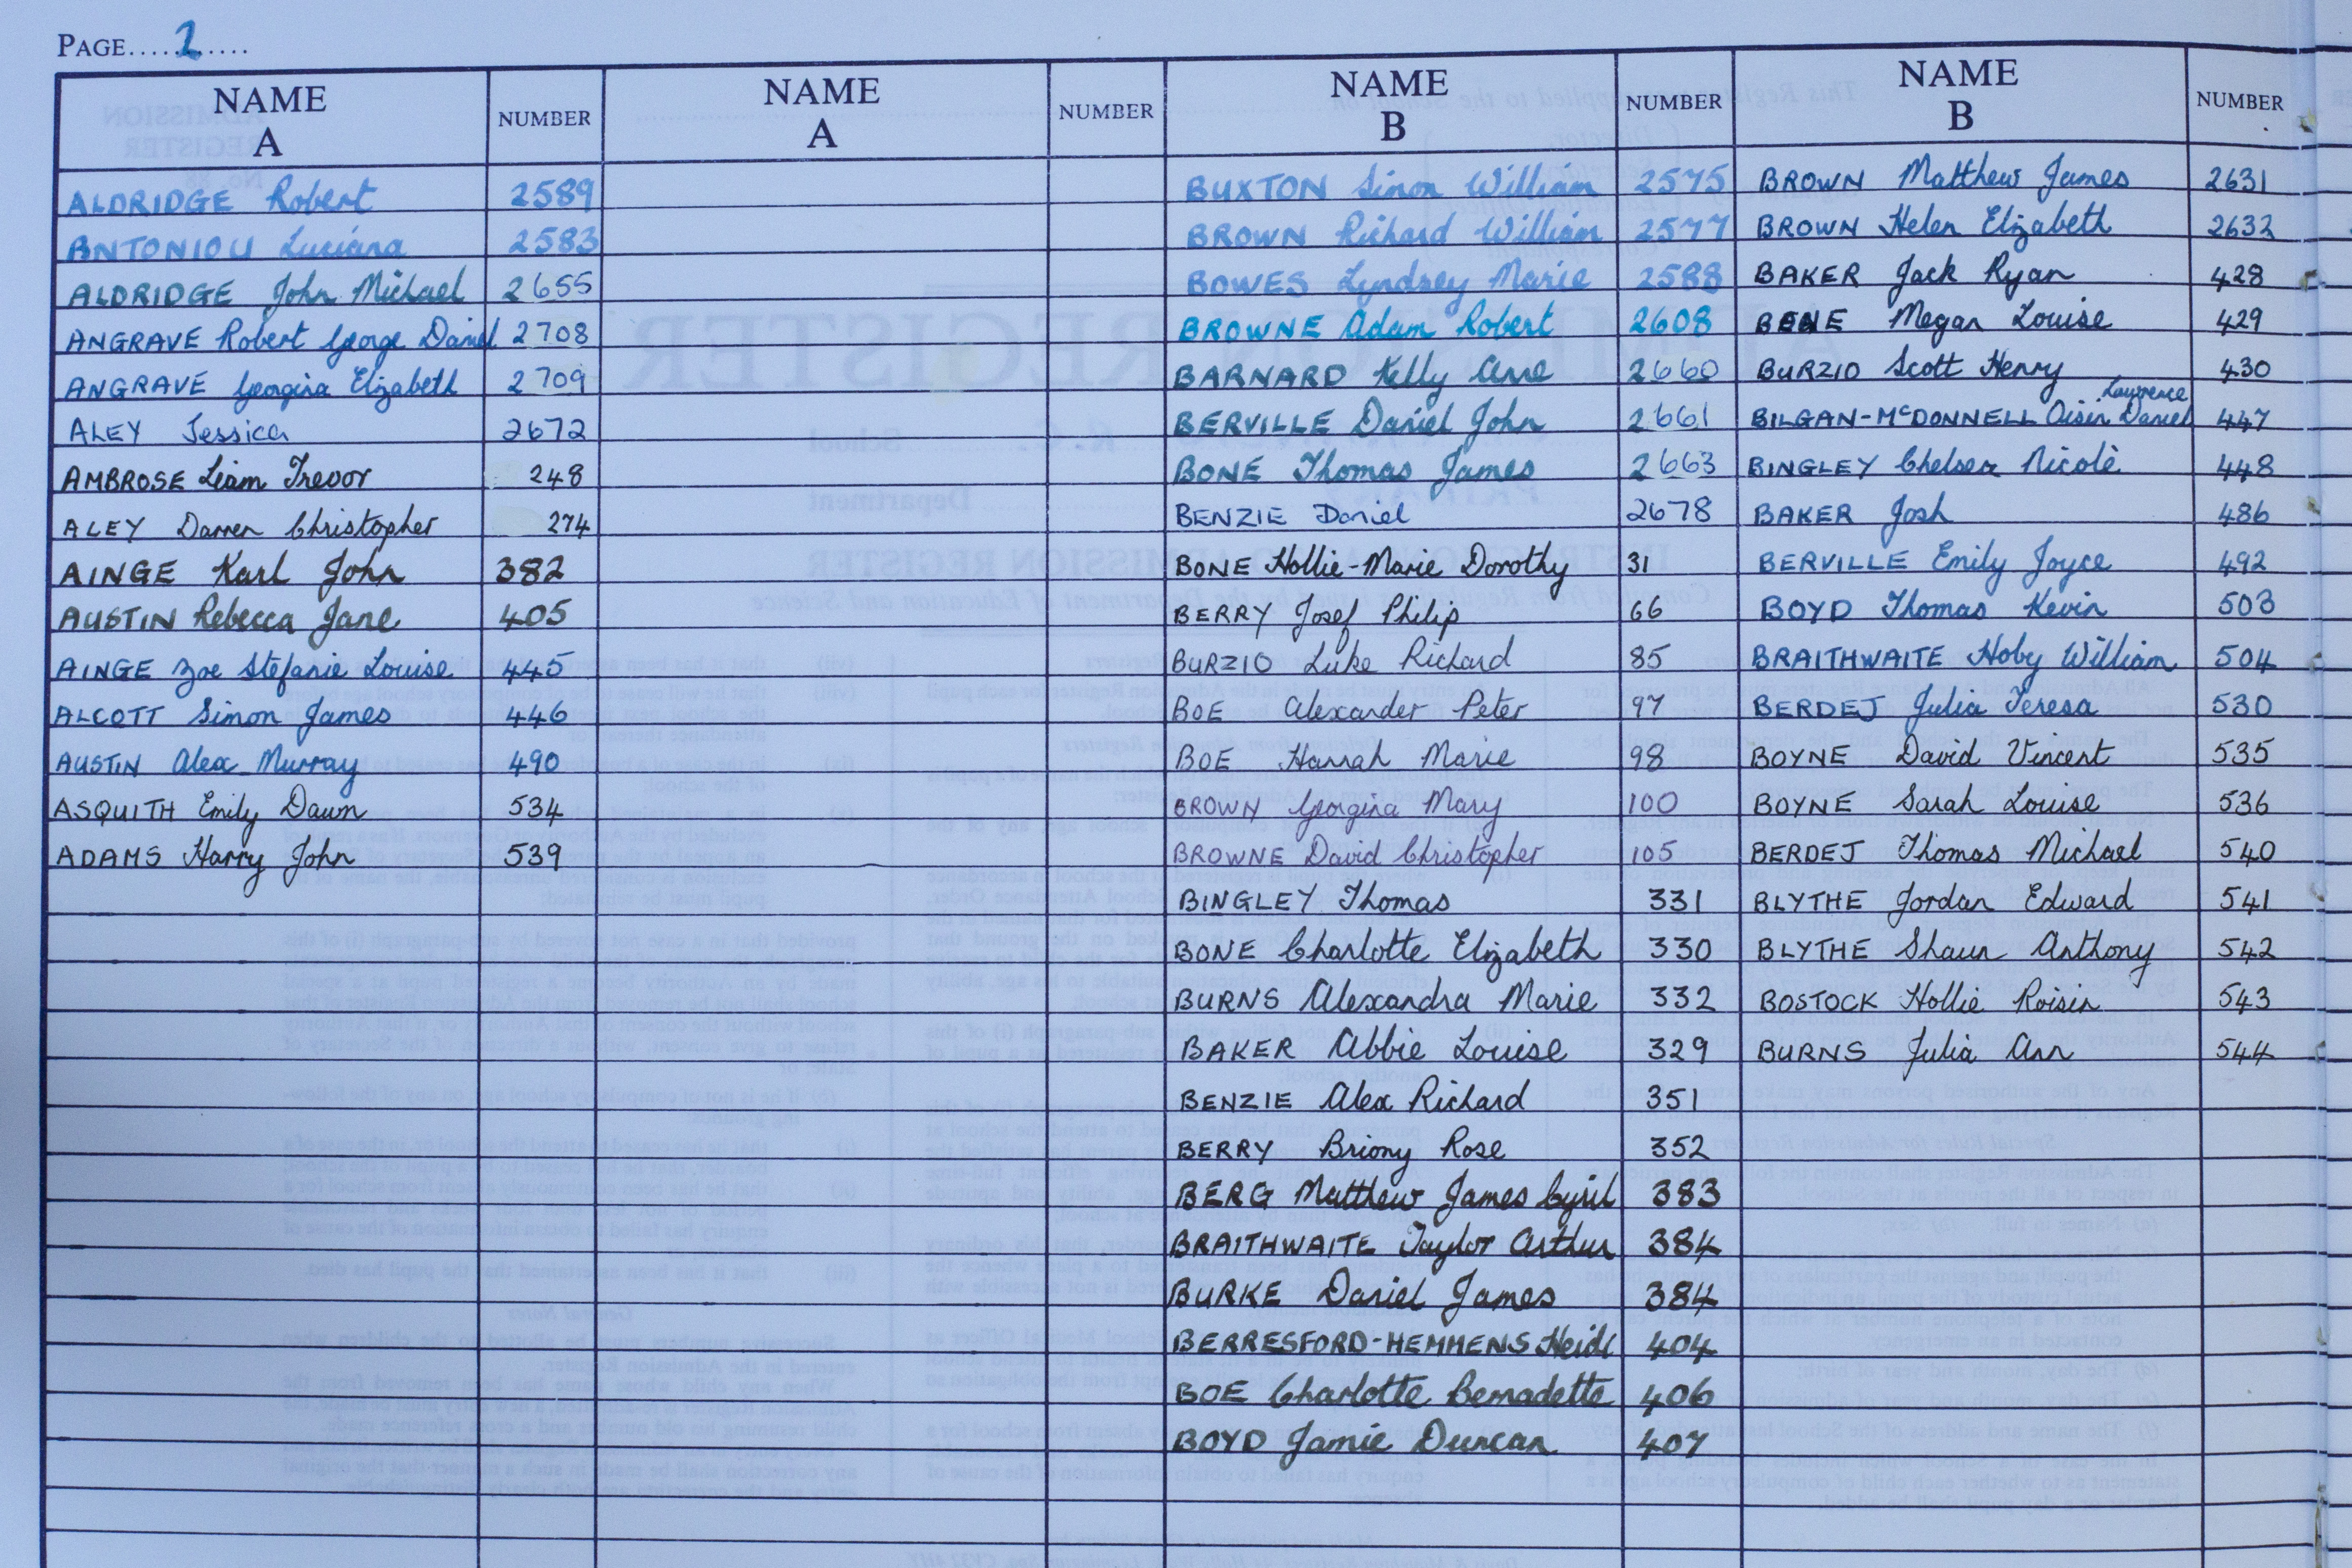 PAGE.....2.....
NAME
A
NUMBER
ALDRIDGE Robert 2589
ANTONIOU Luciana 2583
ALDRIDGE John Michael 2655
ANGRAVE Robert George Daniel 2708
ANGRAVE Georgina Elizabeth 2709
ALEY Jessica 2672
AMBROSE Liam Trevor 248
ALEY Darren Christopher 274
AINGE Karl John 382
AUSTIN Rebecca Jane 405
AINGE Zoe Stefanie Louise 445
ALCOTT Simon James 446
AUSTIN Alex Murray 490
ASQUITH Emily Dawn 534
ADAMS Harry John 539
NAME
A
NUMBER
NAME
B
NUMBER
BUXTON Simon William 2575
BROWN Richard William 2577
BOWES Lyndsey Marie 2588
BROWNE Adam Robert 2608
BARNARD Kelly Anne 2660
BERVILLE Daniel John 2661
BONE Thomas James 2663
BENZIE Daniel 2678
BONE Hollie-Marie Dorothy 31
BERRY Josef Philip 66
BURZIO Luke Richard 85
BOE Alexander Peter 97
BOE Hannah Marie 98
BROWN Georgina Mary 100
BROWNE David Christopher 105
BINGLEY Thomas 331
BONE Charlotte Elizabeth 330
BURNS Alexandra Marie 332
BAKER Abbie Louise 329
BENZIE Alex Richard 351
BERRY Briony Rose 352
BERG Matthew James Cyril 383
BRAITHWAITE Taylor Arthur 384
BURKE Daniel James 384
BERRESFORD-HEMMENS Heidi 404
BOE Charlotte Bernadette 406
BOYD Jamie Duncan 407
NAME
B
NUMBER
BROWN Matthew James 2631
BROWN Helen Elizabeth 2632
BAKER Jack Ryan 428
BENE Megan Louise 429
BURZIO Scott Henry 430
Lawrence
BILGAN-McDONNELL Oisin Daniel 447
BINGLEY Chelsea Nicole 448
BAKER Josh 486
BERVILLE Emily Joyce 492
BOYD Thomas Kevin 503
BRAITHWAITE Hoby William 504
BERDEJ Julia Teresa 530
BOYNE David Vincent 535
BOYNE Sarah Louise 536
BERDEJ Thomas Michael 540
BLYTHE Jordan Edward 541
BLYTHE Shaun Anthony 542
BOSTOCK Hollie Roisin 543
BURNS Julia Ann 544